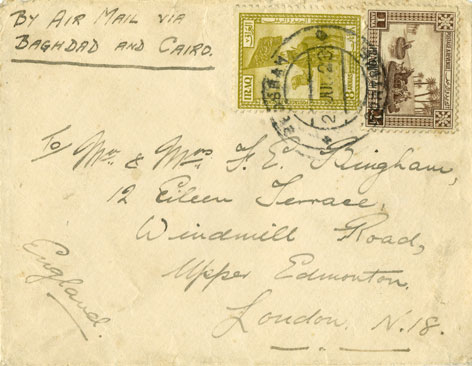 BY AIR MAIL VIA
BAGHDAD AND CAIRO.
IRAQ
To Mr. & Mrs F. E. Bingham,
12 Eileen Terrace,
Windmill Road,
Upper Edmonton.
London. N.18.
England.